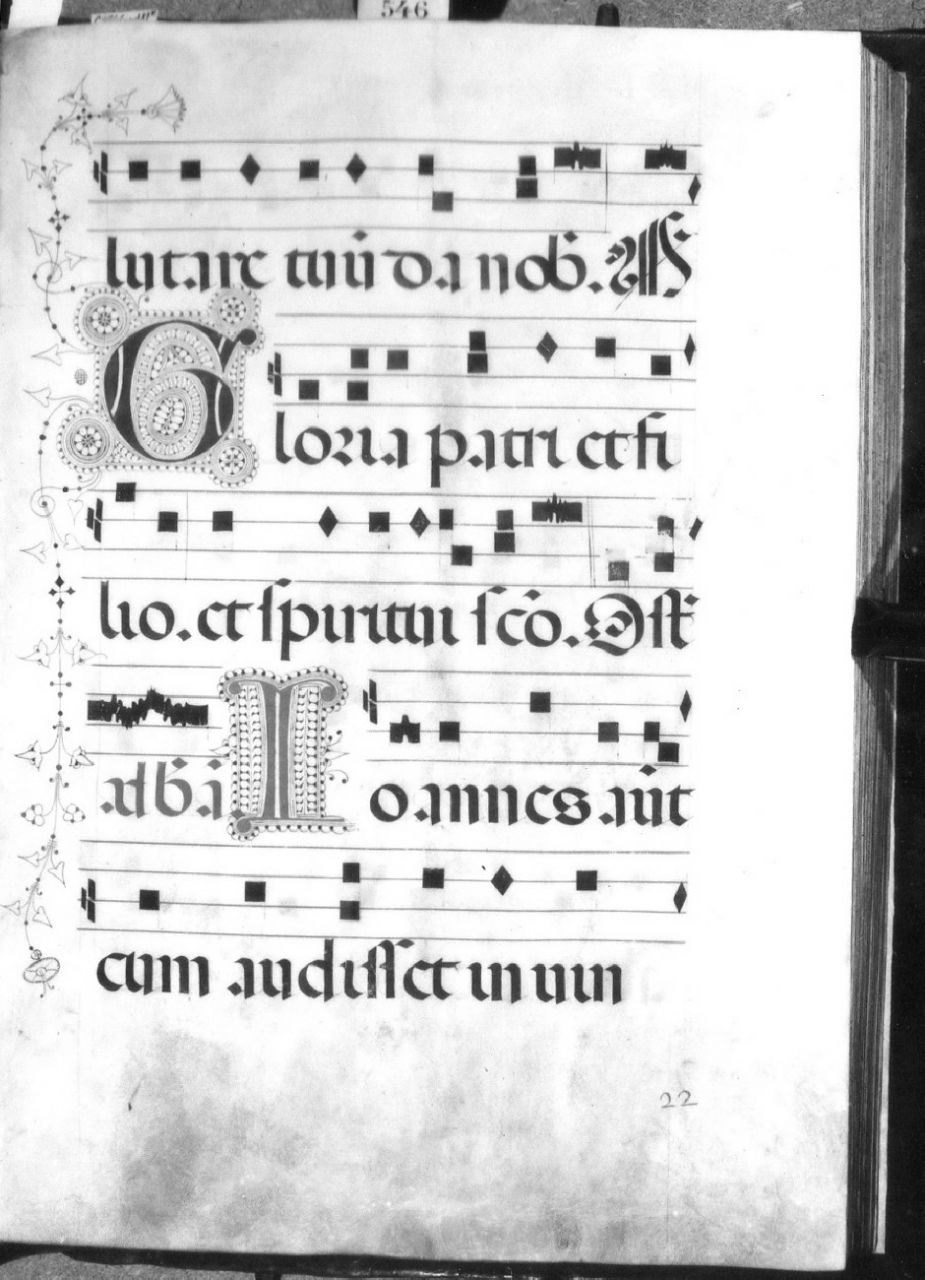 546
lutare tuū da nob̄. A̅S̅
Gloria patri et fi
lio. et spiritui sc̄o. Ost̄
ad b̄ā. Ioannes aūt
cum audisset in vin
22